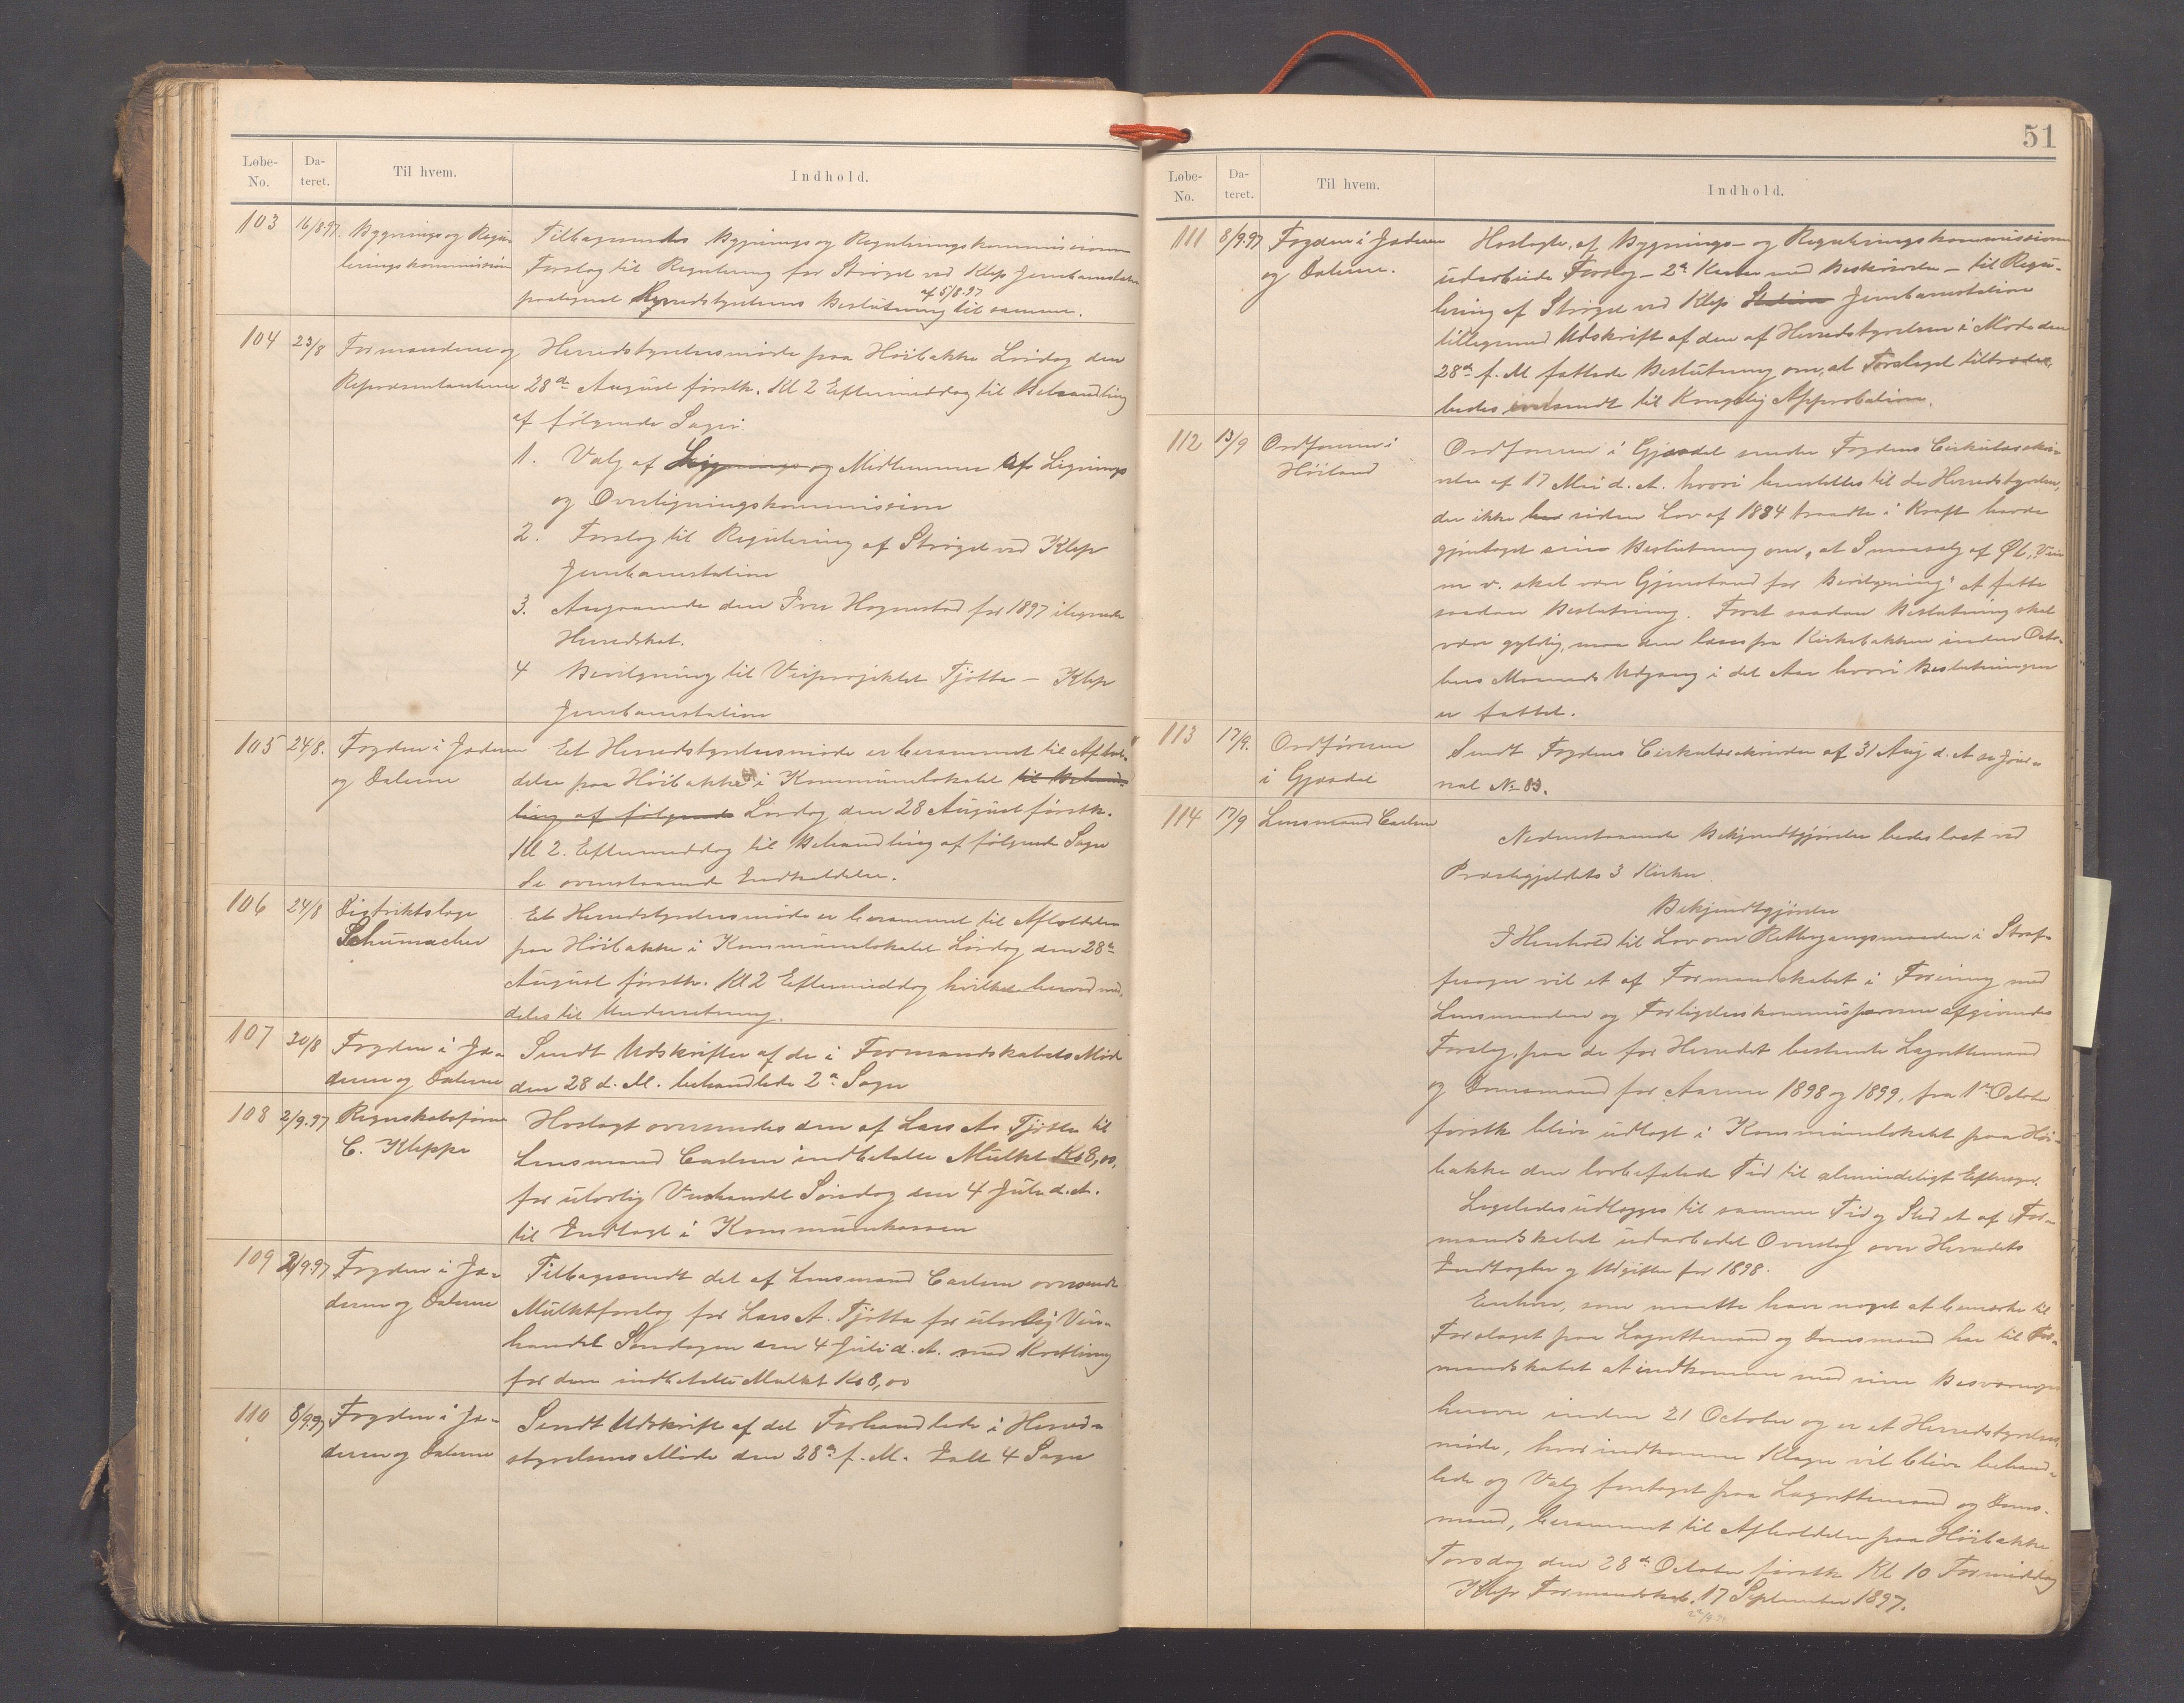 Løbe-No. Da-teret. Til hvem. Indhold.
103 16/8 97. Bygnings og Regu-
leringskommissionen
Tilbagesendes Bygnings og Reguleringskommissionens
Forslag til Regulering for Strøget ved Klep Jernbanestation
paategnet Herredstyrelsens Beslutning af 5/8.97 til samme.
104 23/8 Formændene og
Repræsentanterne
Herredstyrelsesmøde paa Höibakke Lördag den
28de August förstk. Kl 2 Eftermiddag til Behandling
af fölgende Sager.
1. Valg af Lignings og Medlemmer af Lignings
og Overligningskommission
2. Forslag til Regulering af Strøget ved Klep
Jernbanestation
3. Angaaende den Iver Hognestad for 1897 ilignede
Herredskat.
4 Bevilgning til Veiprojektet Tjötta – Klep
Jernbanestation
105 24/8. Fogden i Jæderen
og Dalerne
Et Herredstyrelsesmöde er berammet til Afhol-
delse paa Höibakke i Kommunelokalet til Behand-
ling af fölgende Lördag den 28 August förstk.
Kl 2. Eftermiddag til Behandling af fölgende Sager
Se ovenstaaende Indkaldelse.
106 24/8 Distriktslæge
Schumacher
Et Herredstyrelsesmöde er berammet til Afholdelse
paa Höibakke i Kommunelokalet Lördag den 28de
August förstk. Kl 2 Eftermiddag hvilket herved med-
deles til Underretning.
107 30/8 Fogden i Jæ-
deren og Dalerne
Sendt Udskrifter af de i Formandskabets Møde
den 28 d. M. behandlede 2de Sager
108 2/9.97 Regnskabsförer
C. Kleppe
Hoslagt oversendes den af Lars As. Tjötta til
Lensmand Carlsen indbetalte Mulkt Kr 8,00,
for ulovlig Vinhandel Söndag den 4 Juli d. A.
til Indtægt i Kommunekassen
109 2/9.97 Fogden i Jæ-
deren og Dalerne
Tilbagesendt det af Lensmand Carlsen oversendte
Mulktforelæg for Lars A. Tjötta for ulovlig Vin-
handel Søndagen den 4 Juli d. A. med Kvittering
for den indbetalte Mulkt Kr 8,00
110 8/9.97 Fogden i Jæ-
deren og Dalerne
Sendt Udskrift af det Forhandlede i Herred-
styrelsens Möde den 28de f. M. Ialt 4 Sager
51
Løbe-No. Da-teret. Til hvem. Indhold.
111 8/9.97 Fogden i Jæderen
og Dalerne.
Hoslagte, af Bygnings- og Reguleringskommissionen
udarbeide Forslag – 2de Karter med Beskrivelse – til Regu-
lering af Strøget ved Klep Station Jernbanestation
tilligemed Udskrift af den af Herredstyrelsen i Møde den
28de f. M. fattede Beslutning om, at Forslaget tiltrædes,
bedes indsendt til Kongelig Approbation.
112 13/9 Ordføreren i
Höiland
Ordføreren i Gjæsdal sender Fogdens Cirkulæreskri-
velse af 17 Mai d. A. hvori henstilles til de Herredstyrelser,
der ikke har siden Lov af 1884 traadte i Kraft havde
gjentaget sine Beslutning om, „at Smaasalg af Øl, Vin
m v. skal være Gjenstand for Bevilgning" at fatte
saadan Beslutning. Forat saadan Beslutning skal
være gyldig, maa den læses fra Kirkebakken inden Octo-
bers Maaneds Udgang i det Aar hvori Beslutningen
er fattet.
113 17/9. Ordføreren
i Gjæsdal
Sendt Fogdens Cirkulæreskrivelse af 31 Aug d. A. se Jour-
nal No 83.
114 17/9 Lensmand Carlsen
Nedenstaaende Bekjendtgjørelse bedes læst ved
Præstegjeldets 3 Kirker.
Bekjendtgjørelse
I Henhold til Lov om Rettergangsmaaden i Straf-
fesager vil et af Formandskabet i Forening med
Lensmanden og Forligelseskommissærerne afgivendes
Forslag, paa de for Herredet bestemte Lagrettemænd
og Domsmænd for Aarene 1898 og 1899, fra 1ste October
førstk blive udlagt i Kommunelokalet paa Höi-
bakke den lovbefalede Tid til almindeligt Eftersyn.
Ligeledes udlægges til samme Tid og Sted et af For-
mandskabet udarbeidet Overslag over Herredets
Indtægter og Udgifter for 1898.
Enhver, som maatte have noget at bemærke til
Forslaget paa Lagrettemænd og Domsmænd har til For-
mandskabet at indkomme med sine Besværinger
herover inden 21 October og er et Herredstyrelses-
möde, hvor indkomne Klager vil blive behand-
lede og Valg foretaget paa Lagrettemænd og Doms-
mænd, berammet til Afholdelse paa Höibakke
Torsdag den 28de October førstk Kl 10 Formiddag
Klep Formandskab. 17 September 1897.